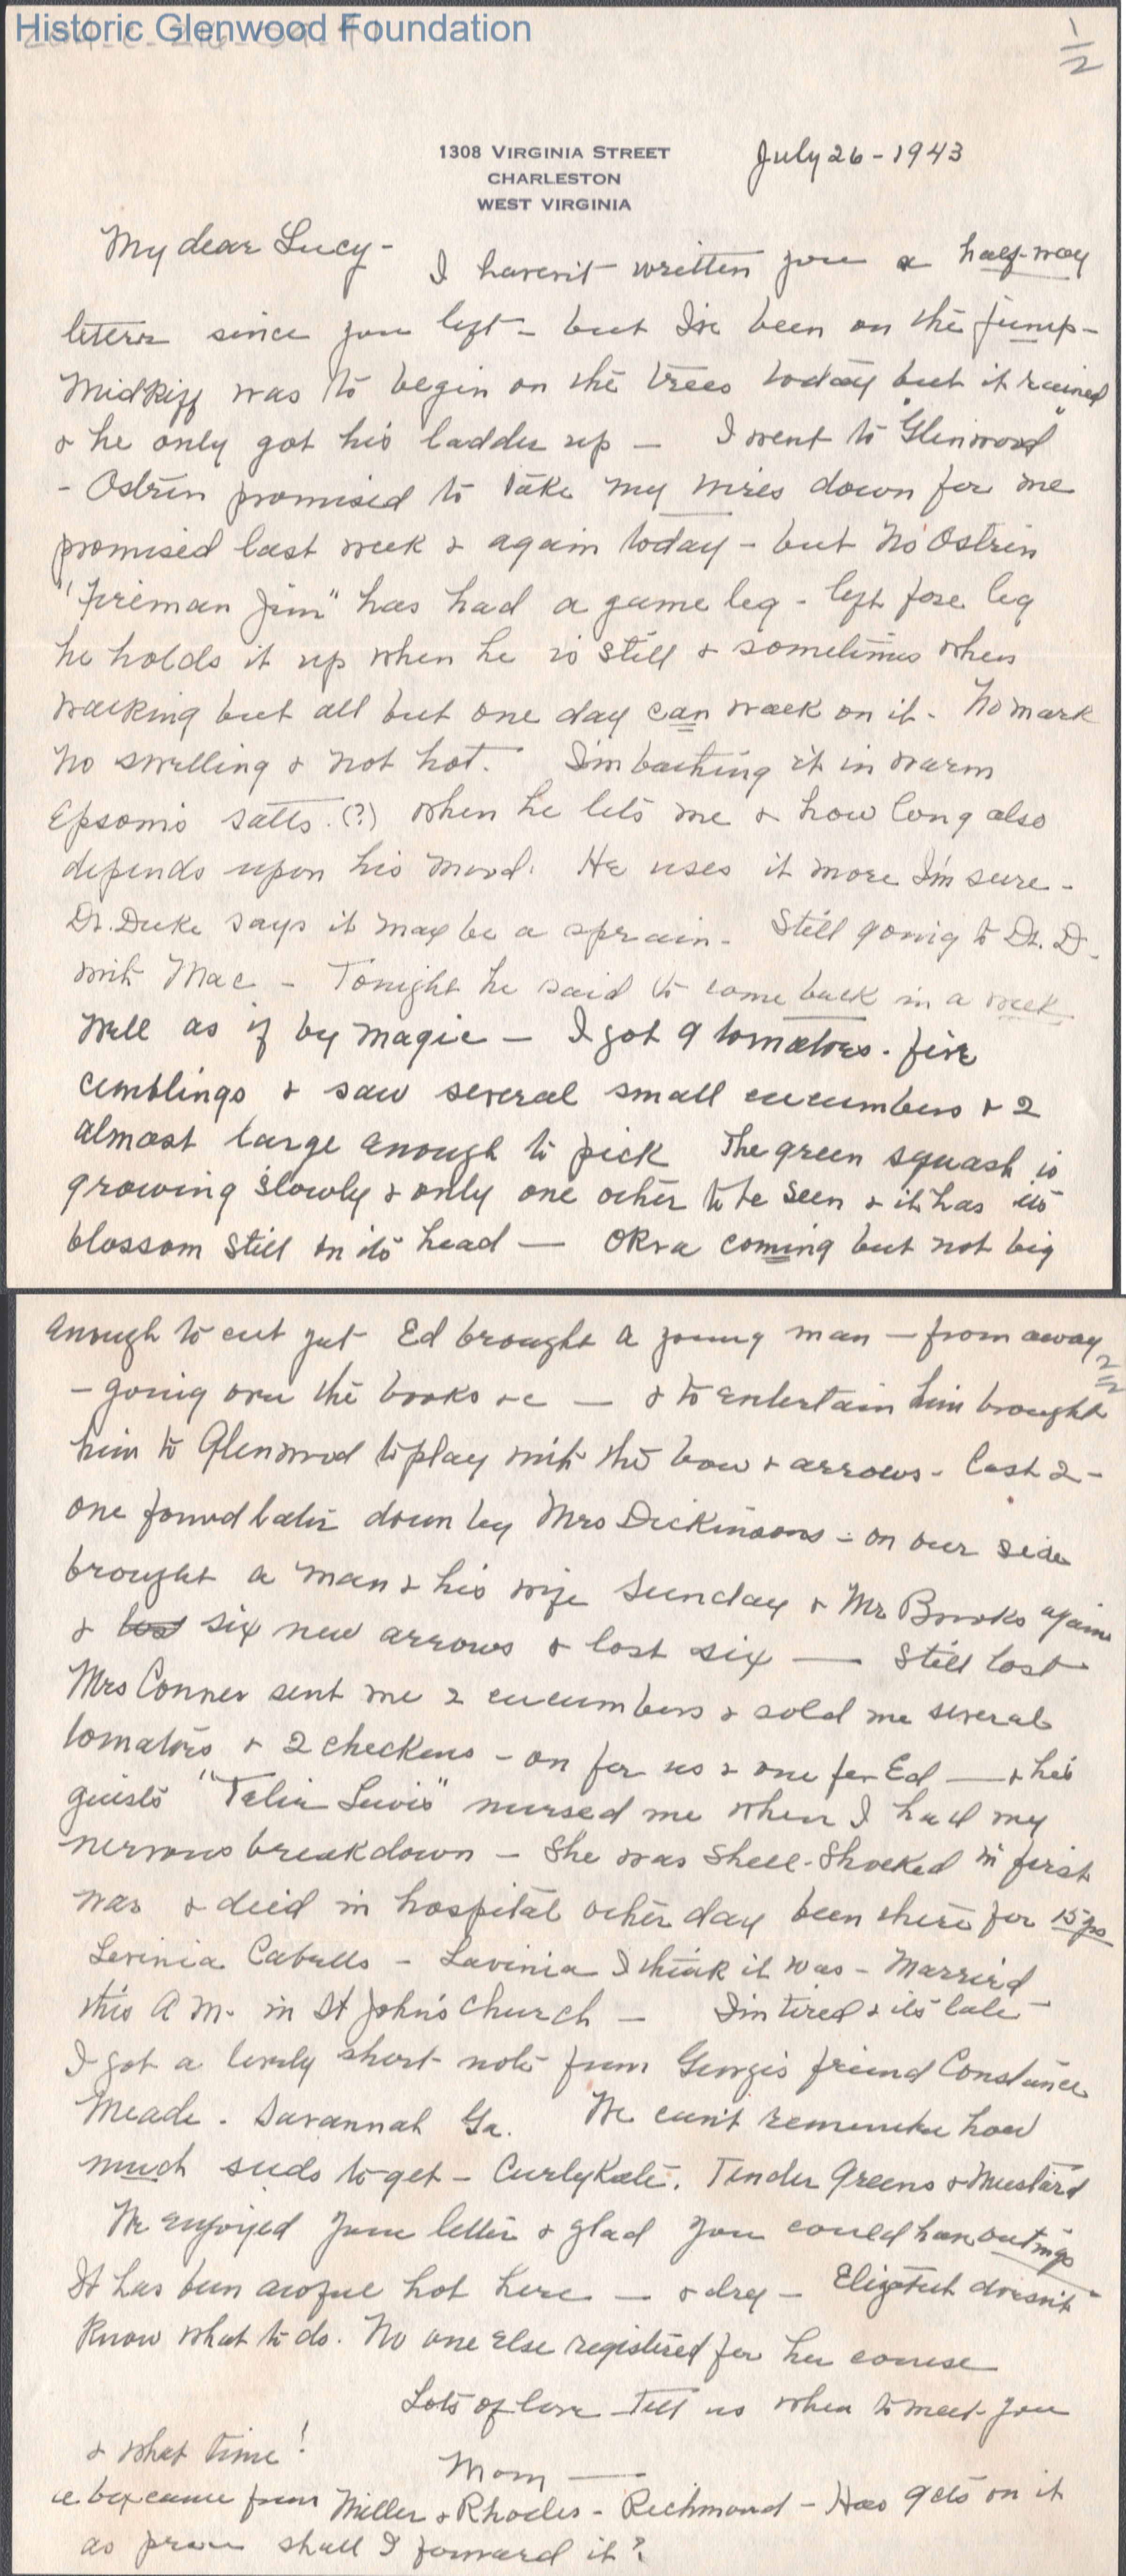 Historic Glenwood Foundation
1/2
1308 VIRGINIA STREET
CHARLESTON
WEST VIRGINIA
July 26 - 1943
My dear Lucy -
I haven't written you a half-way
letter since you left - but I've been on the jump -
Midkiff was to begin on the trees today but it rained
& he only got his ladder up — I went to "Glenwood"
- Ostrin promised to take my wires down for me
promised last week & again today - but no Ostrin
"Fireman Jim" has had a game leg - left fore leg
he holds it up when he is still & sometimes when
walking but all but one day can walk on it - No mark
no swelling & not hot. I'm bathing it in warm
Epsom's salts. (?) when he lets me & how long also
depends upon his mood. He uses it more I'm sure -
Dr. Duke says it may be a sprain - Still going to Dr. D.
with Mac - Tonight he said to come back in a week
Well as if by magic — I got 9 tomatoes. five
cymblings & saw several small cucumbers & 2
almost large enough to pick The green squash is
growing slowly & only one other to be seen & it has its
blossom still on its head — Okra coming but not big
enough to cut yet Ed brought a young man — from away
2/2
- going over the books &c — & to entertain him brought
him to Glenwood to play with the bow & arrows - Lost 2 -
one found later down by Mrs Dickinsons - on our side
brought a man & his wife Sunday & Mr Brooks again
& lost six new arrows & lost six — Still lost
Mrs Conner sent me 2 cucumbers & sold me several
tomatoes & 2 checkens - on for us & one for Ed — & his
guests "Telia Lewis" nursed me when I had my
nervous breakdown - She was Shell-Shocked in first
war & died in hospital other day been there for 15 yrs
Levinia Cabells - Lavinia I think it was - Married
this A M. in St John's Church — I'm tired & its late -
I got a lovely short note from Georges friend Constance
Meade - Savannah Ga. We can't remember how
much seeds to get - Curly Kale, Tender Greens & Mustard
We enjoyed your letter & glad you could have outings
It has been awful hot here — & dry - Elizabeth doesn't
know what to do. No one else registered for her course
Lots of love Tell us when to meet you
& what time!
Mom —
box came from Miller & Rhodes - Richmond - Has on it
as shall I forward it?